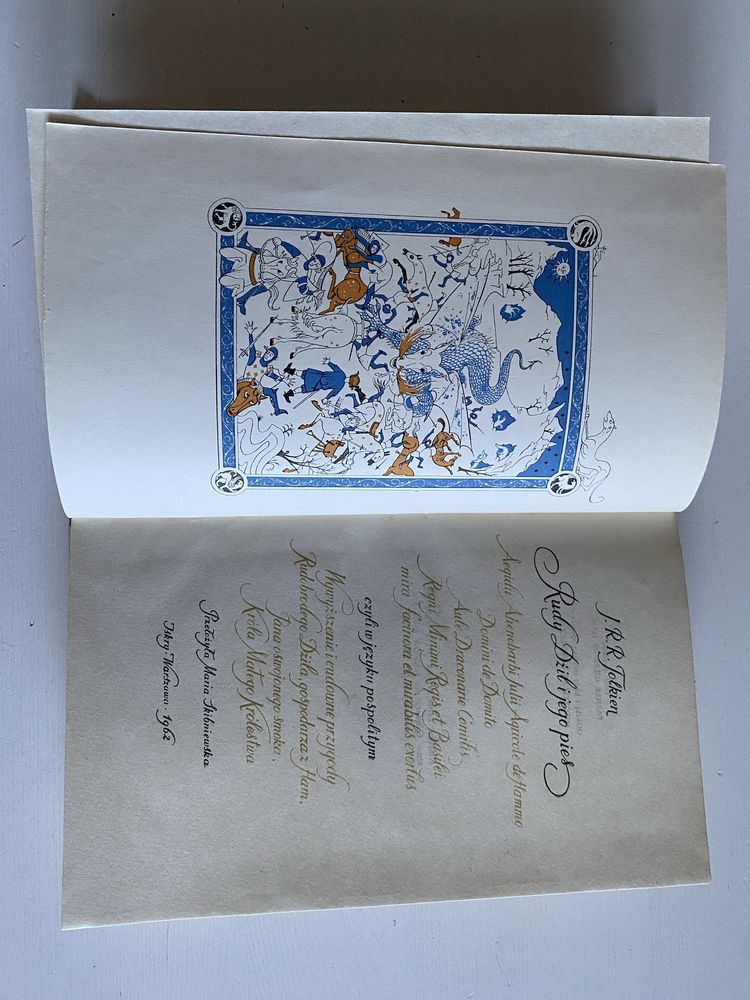 J. R. R. Tolkien
Rudy Dżil i jego pies
Aegidii Ahenobarbi Julii Agricole de Hammo
Domini de Domito
Aule Draconarie Comitis
Regni Minimi Regis et Basilei
mira facinora et mirabilis exortus
czyli w języku pospolitym
Wywyższenie i cudowne przygody
Rudobrodego Dżila, gospodarza z Ham,
Pana oswojonego smoka,
Króla Małego Królestwa
Przełożyła Maria Skibniewska
Iskry·Warszawa·1962